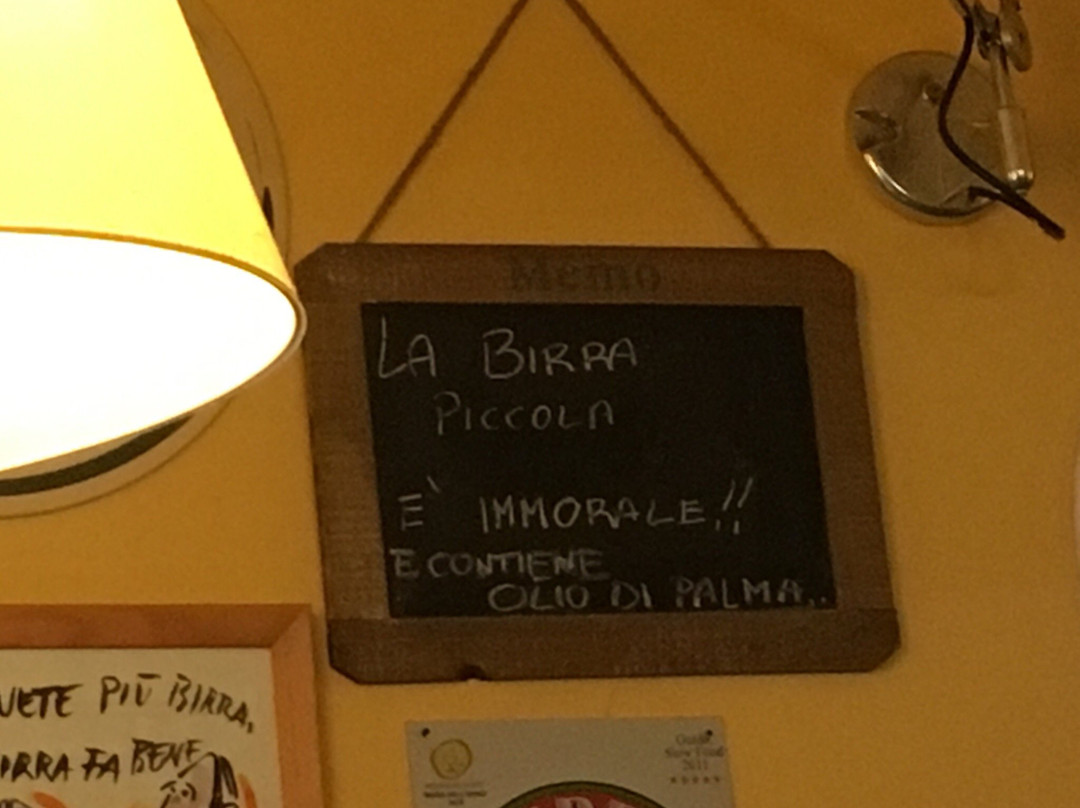 Memo
LA BIRRA
PICCOLA
E' IMMORALE!!
E CONTIENE
OLIO DI PALMA..
PIÙ BIRRA,
FA BENE
Guida
Slow Food
2011